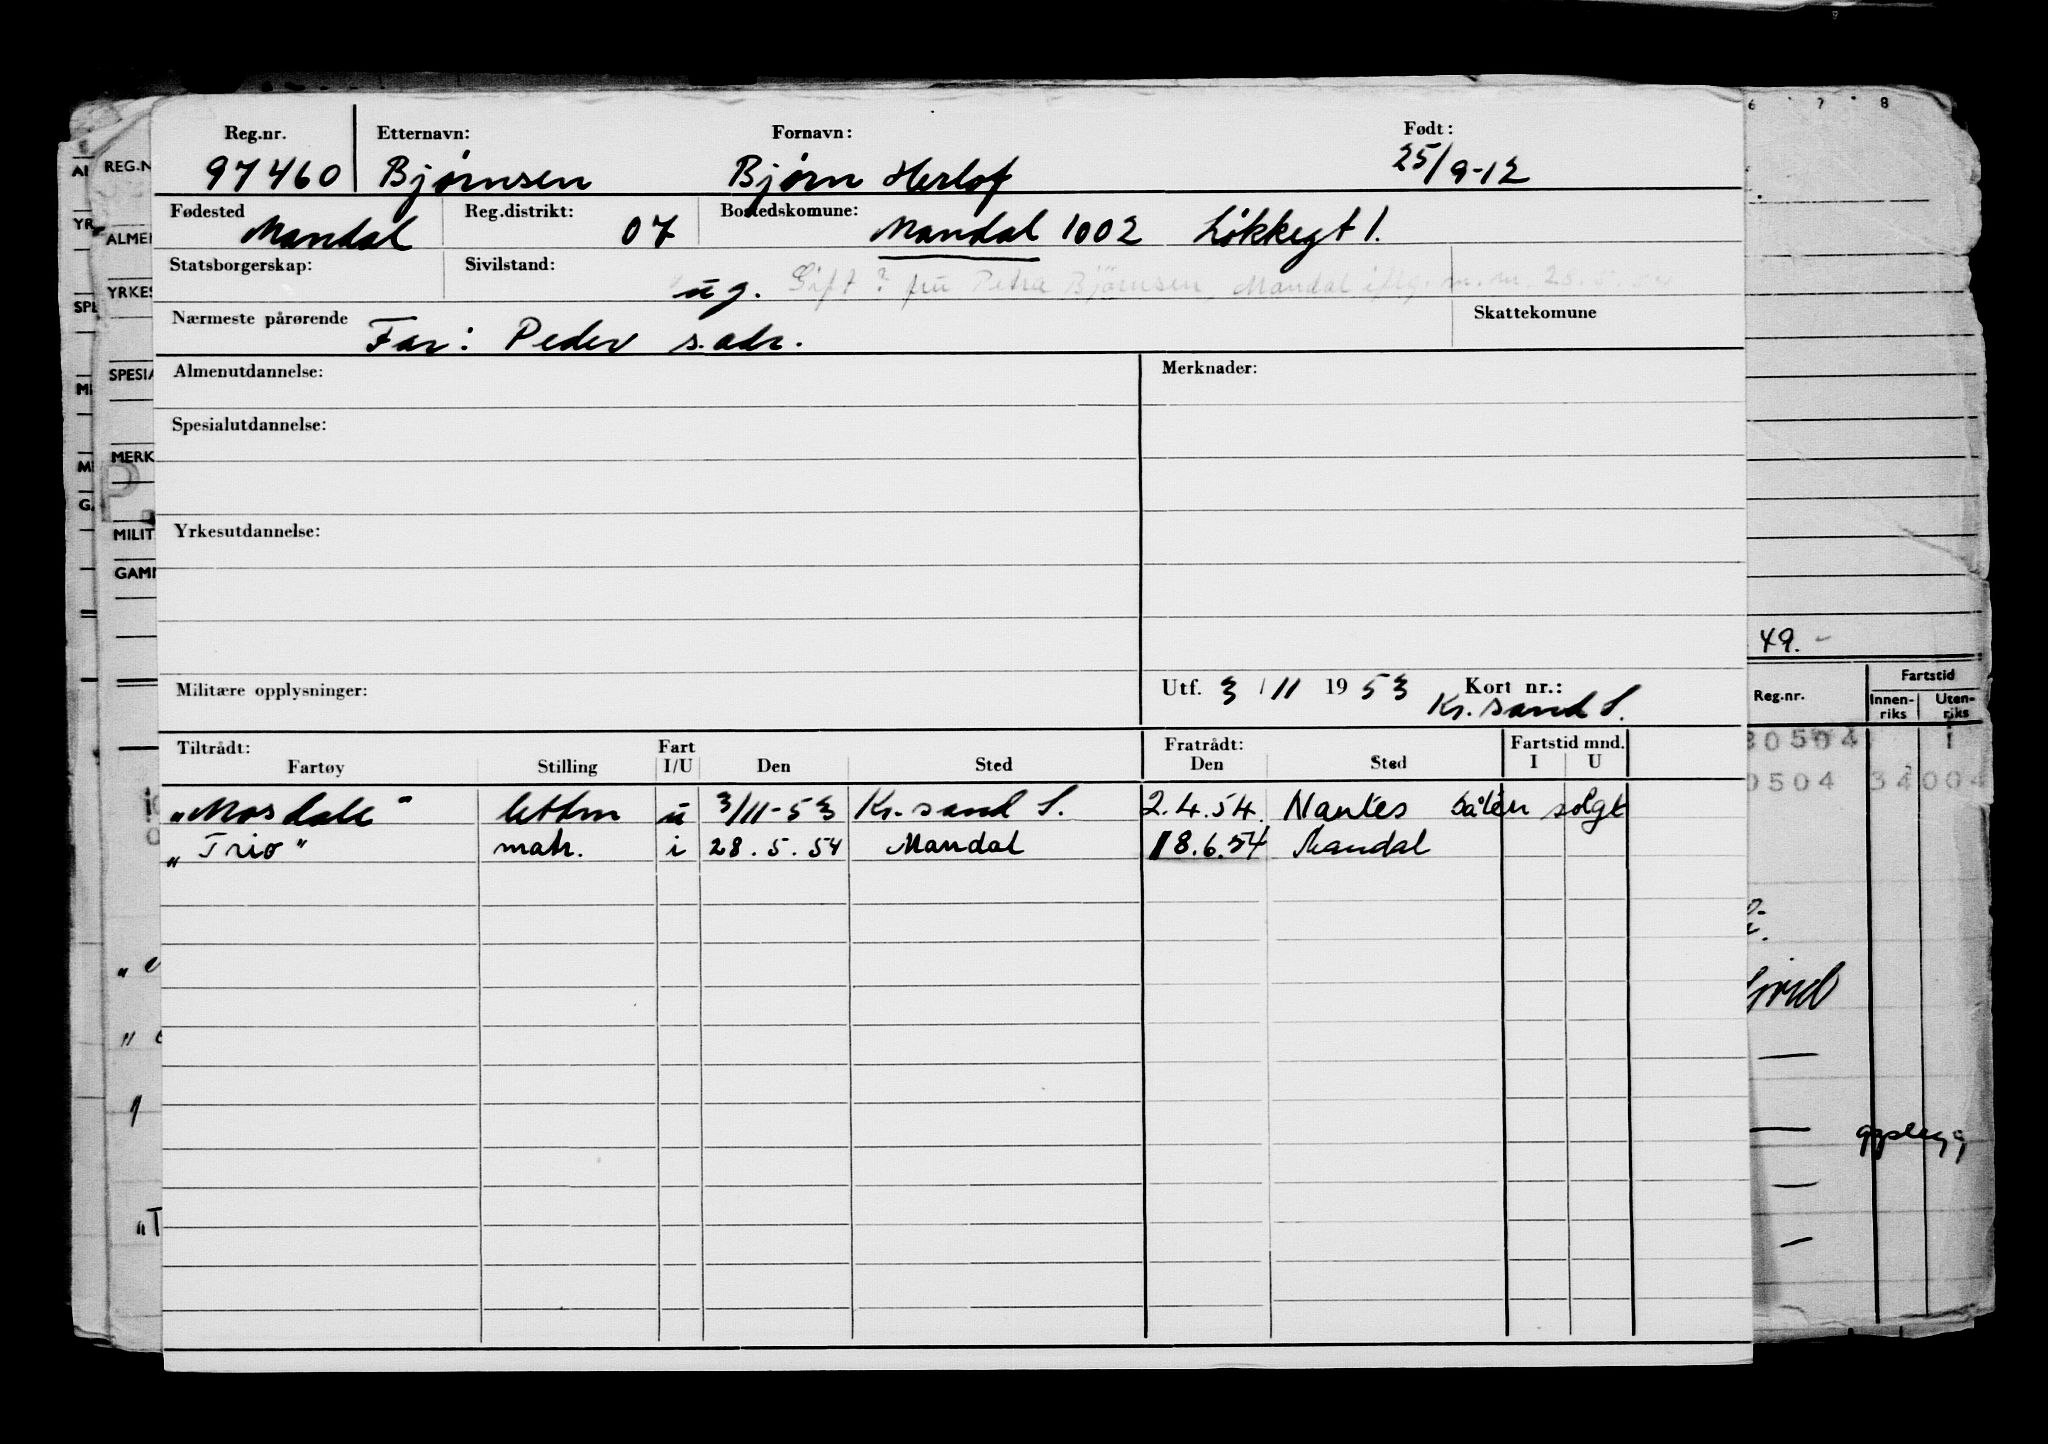 6 7 8
Reg.nr. Etternavn: Fornavn: Født:
97460 Bjørnsen Bjørn Herlof 25/9-12
Fødested Mandal Reg.distrikt: 07 Bostedskomune: Mandal 1002 Løkkegt 1.
Statsborgerskap: Sivilstand: ug. Gift? fru Petra Bjørnsen, Mandal iflg. m.m. 28.5.54
Nærmeste pårørende Far: Peder s.adr. Skattekomune
Almenutdannelse: Merknader:
Spesialutdannelse:
Yrkesutdannelse:
Militære opplysninger: Utf. 3/11 1953 Kort nr.:
Kr.sand S.
Tiltrådt: Fart Fratrådt: Fartstid mnd.
Fartøy Stilling I/U Den Sted Den Sted I U
"Mosdale" lettm u 3/11-53 Kr.sand S. 2.4.54. Nantes båten solgt
"Trio" matr. i 28.5.54 Mandal 18.6.54 Mandal
REG.N
ALMEN
YRKES
SPESIA
MERK
MILIT
GAMM
49.-
Fartstid
Reg.nr. Innen-riks Uten-riks
30504 1
0504 34 004
"T